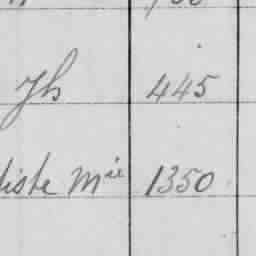 Jh 445
liste Mie 1350